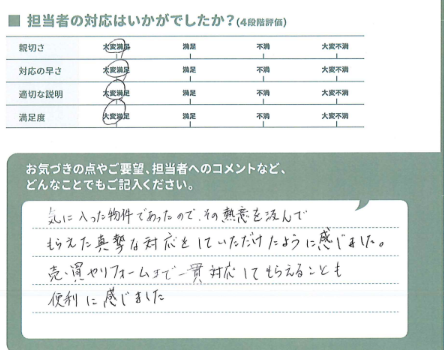 ■ 担当者の対応はいかがでしたか？(4段階評価)
親切さ 大変満足 満足 不満 大変不満
対応の早さ 大変満足 満足 不満 大変不満
適切な説明 大変満足 満足 不満 大変不満
満足度 大変満足 満足 不満 大変不満
お気づきの点やご要望、担当者へのコメントなど、
どんなことでもご記入ください。
気に入った物件であったので、その熱意を汲んで
もらえた真摯な対応をしていただけたように感じました。
売・買やリフォームまで一貫対応してもらえることも
便利に感じました